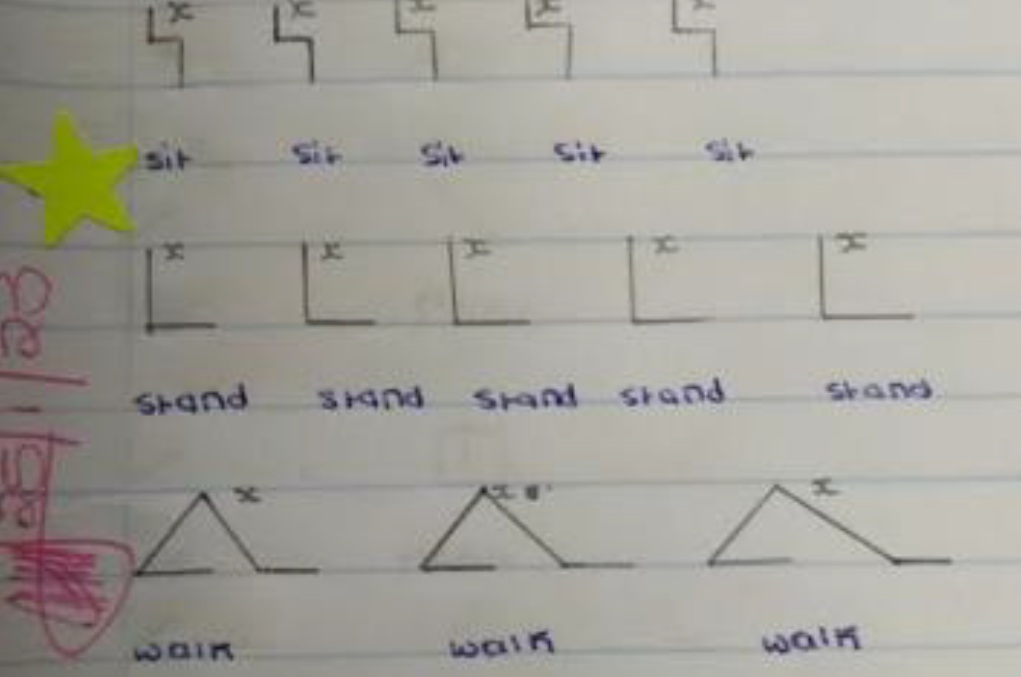 x x x x x
sit sit sit sit sit
x x x x x
stand stand stand stand stand
x x x
walk walk walk